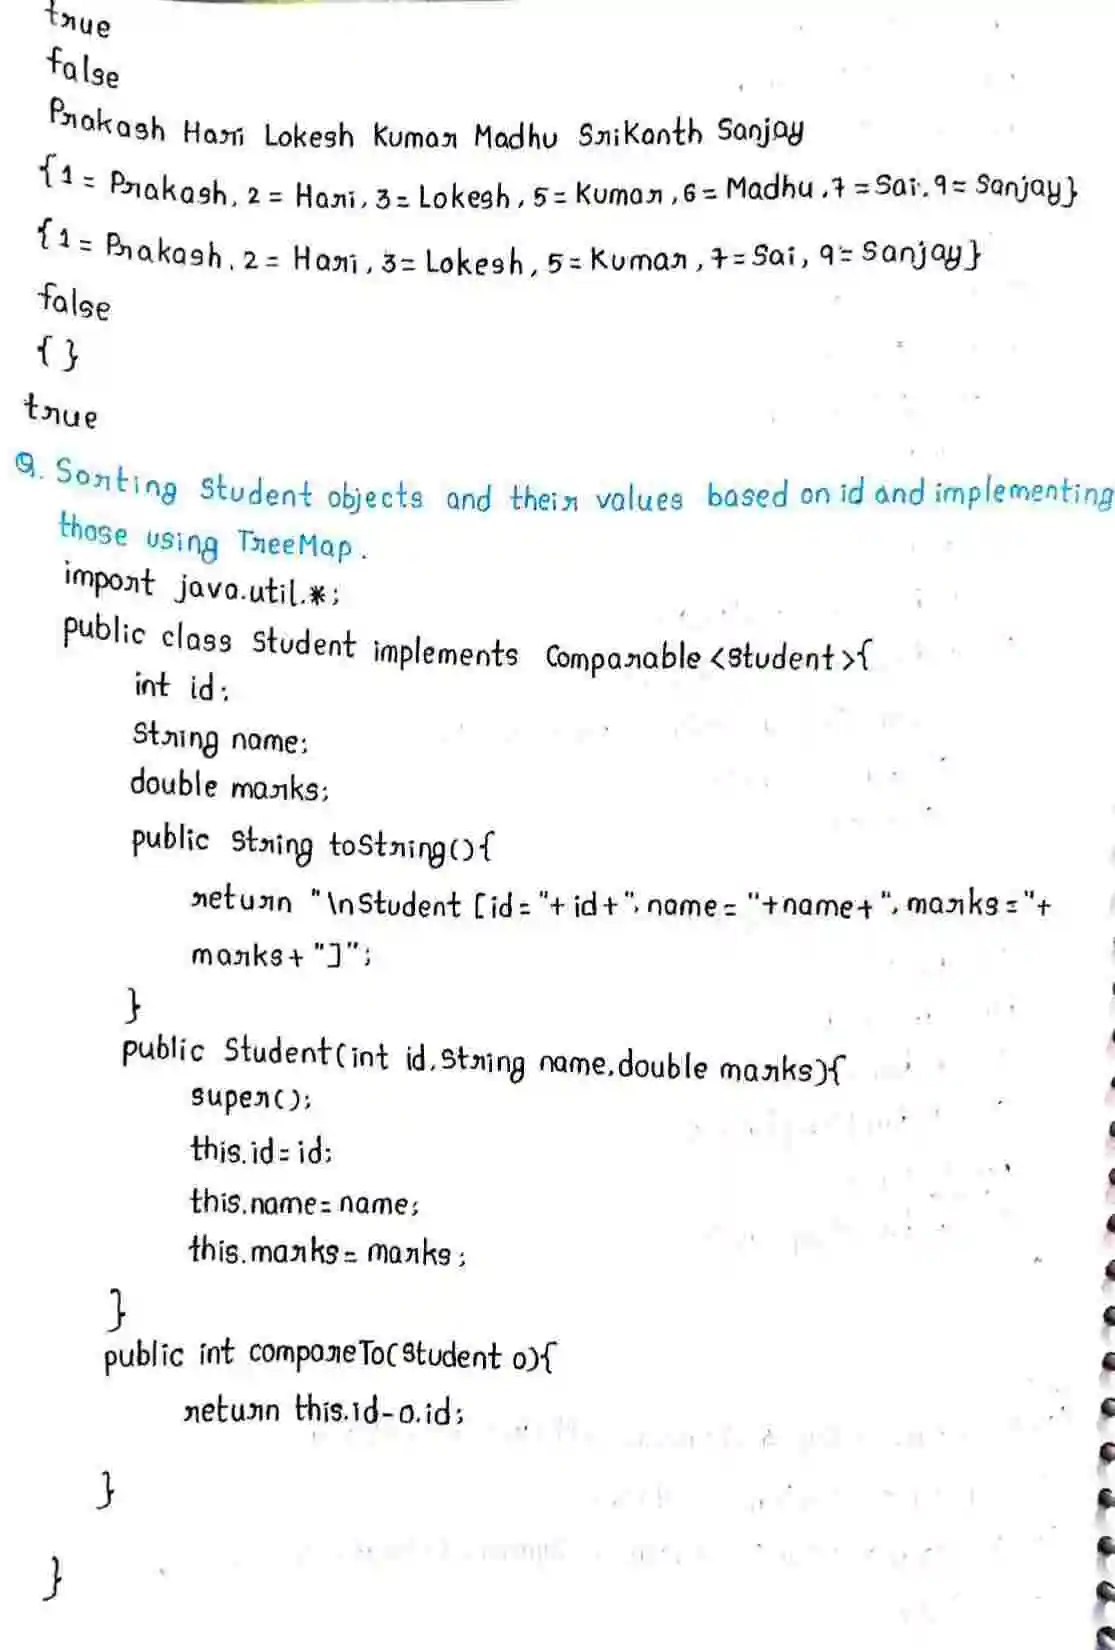 true
false
Prakash Hari Lokesh Kumar Madhu Srikanth Sanjay
{1 = Prakash, 2 = Hari, 3 = Lokesh, 5 = Kumar, 6 = Madhu, 7 = Sai, 9 = Sanjay}
{1 = Prakash, 2 = Hari, 3 = Lokesh, 5 = Kumar, 7 = Sai, 9 = Sanjay}
false
{}
true
9. Sorting Student objects and their values based on id and implementing
those using TreeMap.
import java.util.*;
public class Student implements Comparable <Student>{
int id;
String name;
double marks;
public String toString(){
return "\nStudent [id = "+ id+", name = "+name+", marks = "+
marks+ "]";
}
public Student(int id, String name, double marks){
super();
this.id = id;
this.name = name;
this.marks = marks;
}
public int compareTo(Student o){
return this.id-o.id;
}
}